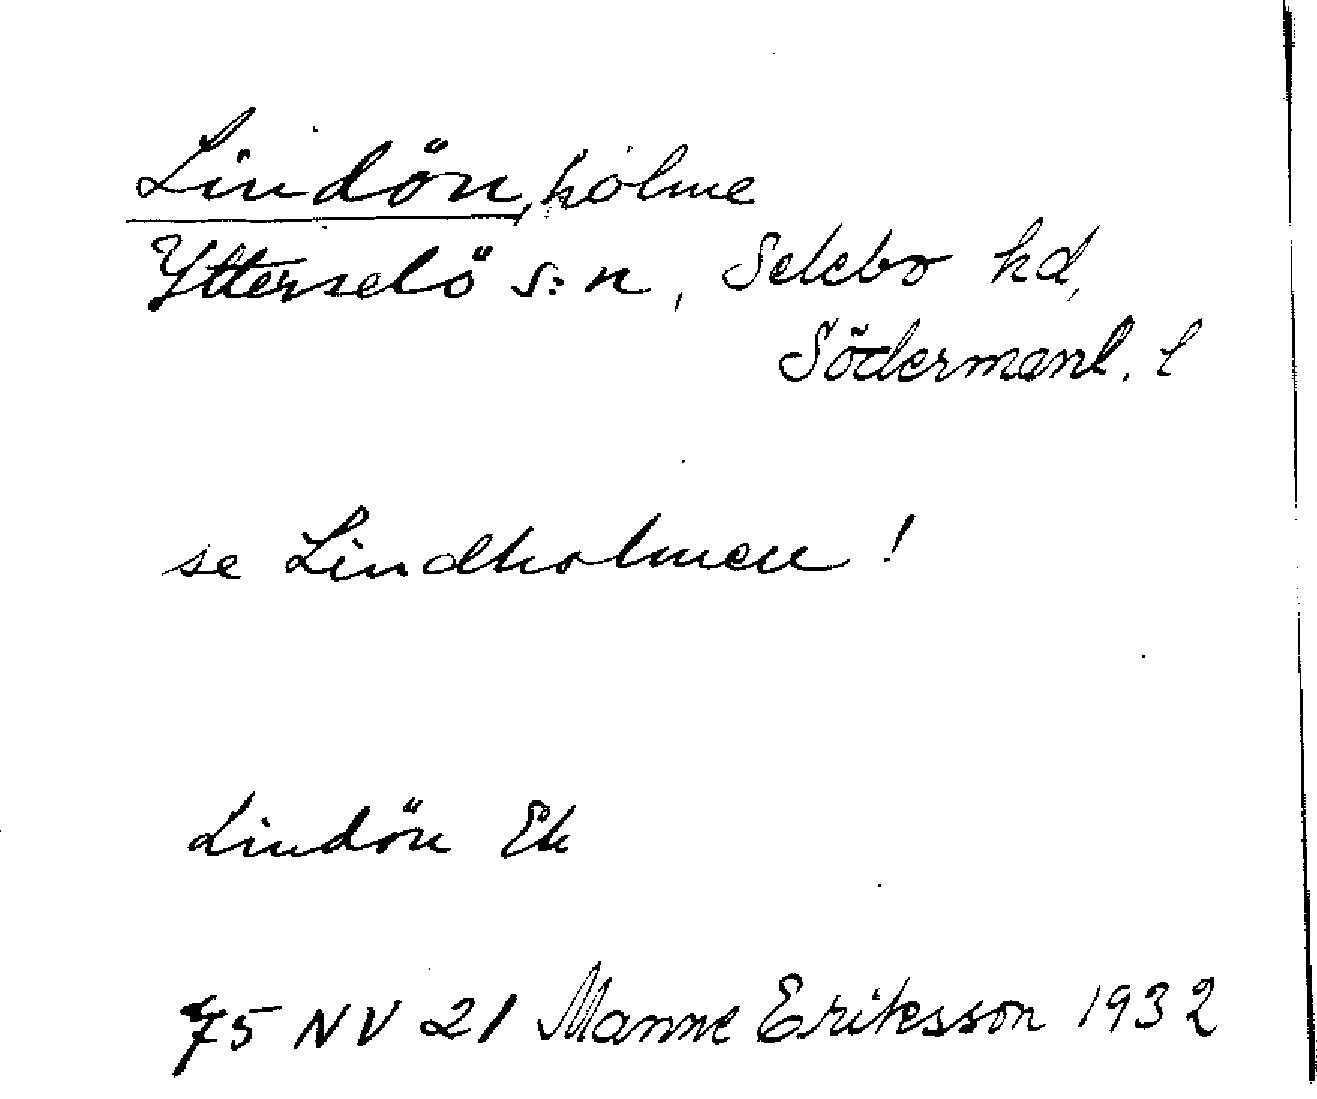 Lindön, holme
Ytterselö s:n, Selebo hd,
Södermanl. l
se Lindholmen!
Lindön Ek
75 NV 21 Manne Eriksson 1932